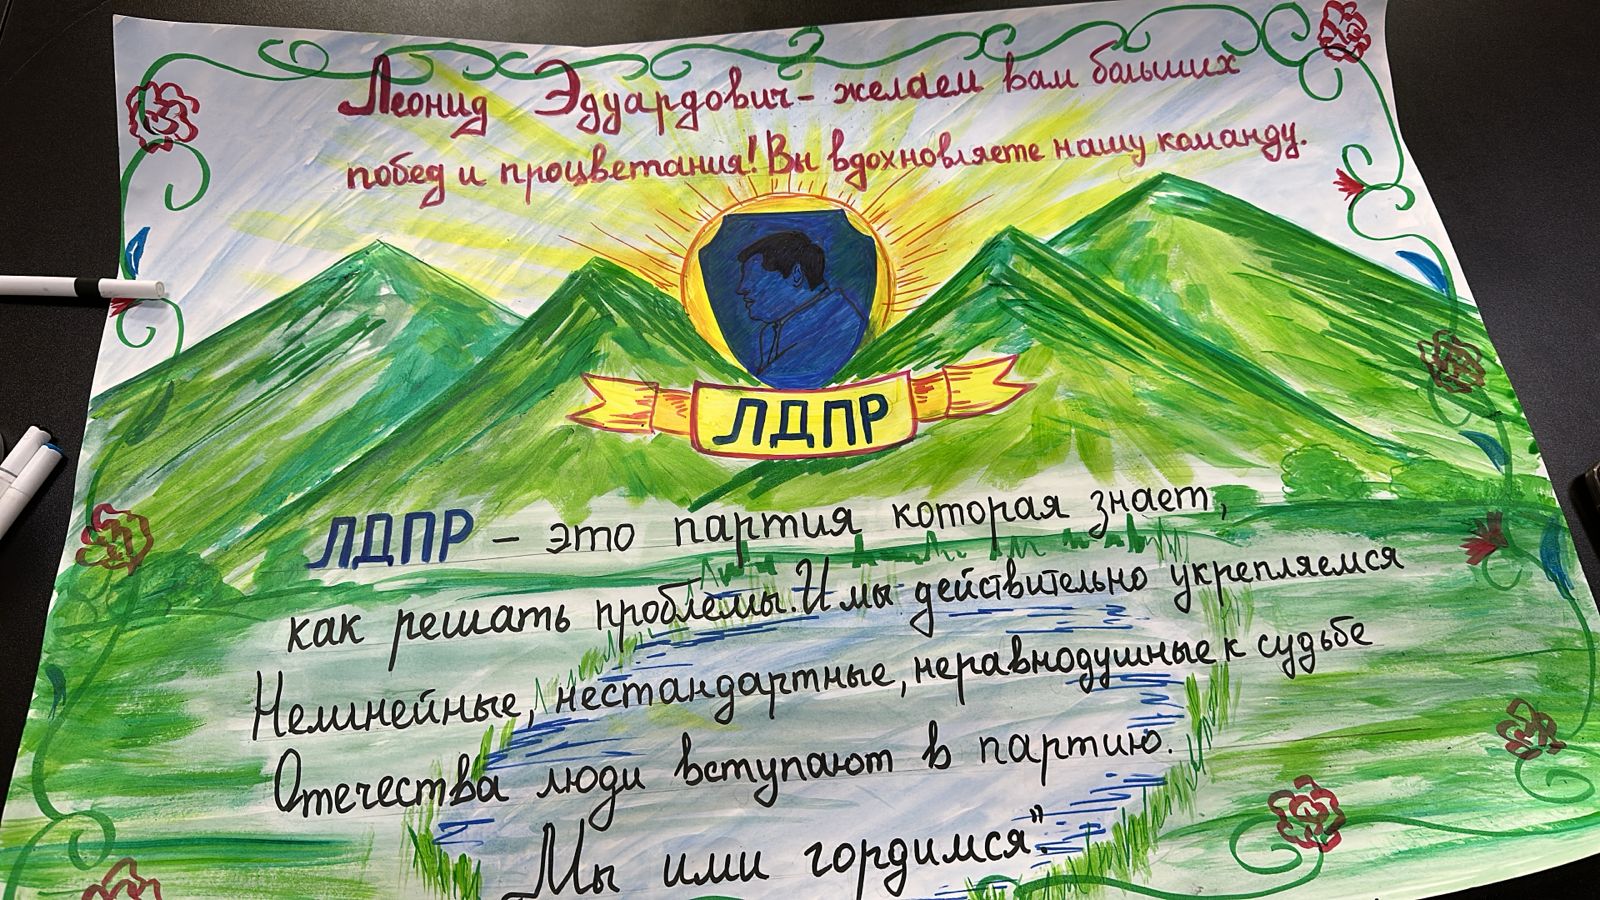 Леонид Эдуардович - желаем вам больших
побед и процветания! Вы вдохновляете нашу команду.
ЛДПР
ЛДПР - это партия которая знает,
как решать проблемы. И мы действительно укрепляемся
Нелинейные, нестандартные, неравнодушные к судьбе
Отечества люди вступают в партию.
Мы ими гордимся".